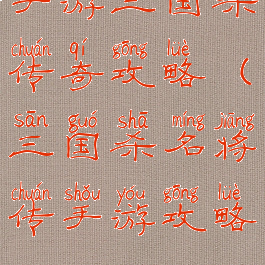 手游三国杀
chuán qí gōng lüè
传奇攻略（
sān guó shā míng jiàng
三国杀名将
chuán shǒu yóu gōng lüè
传手游攻略